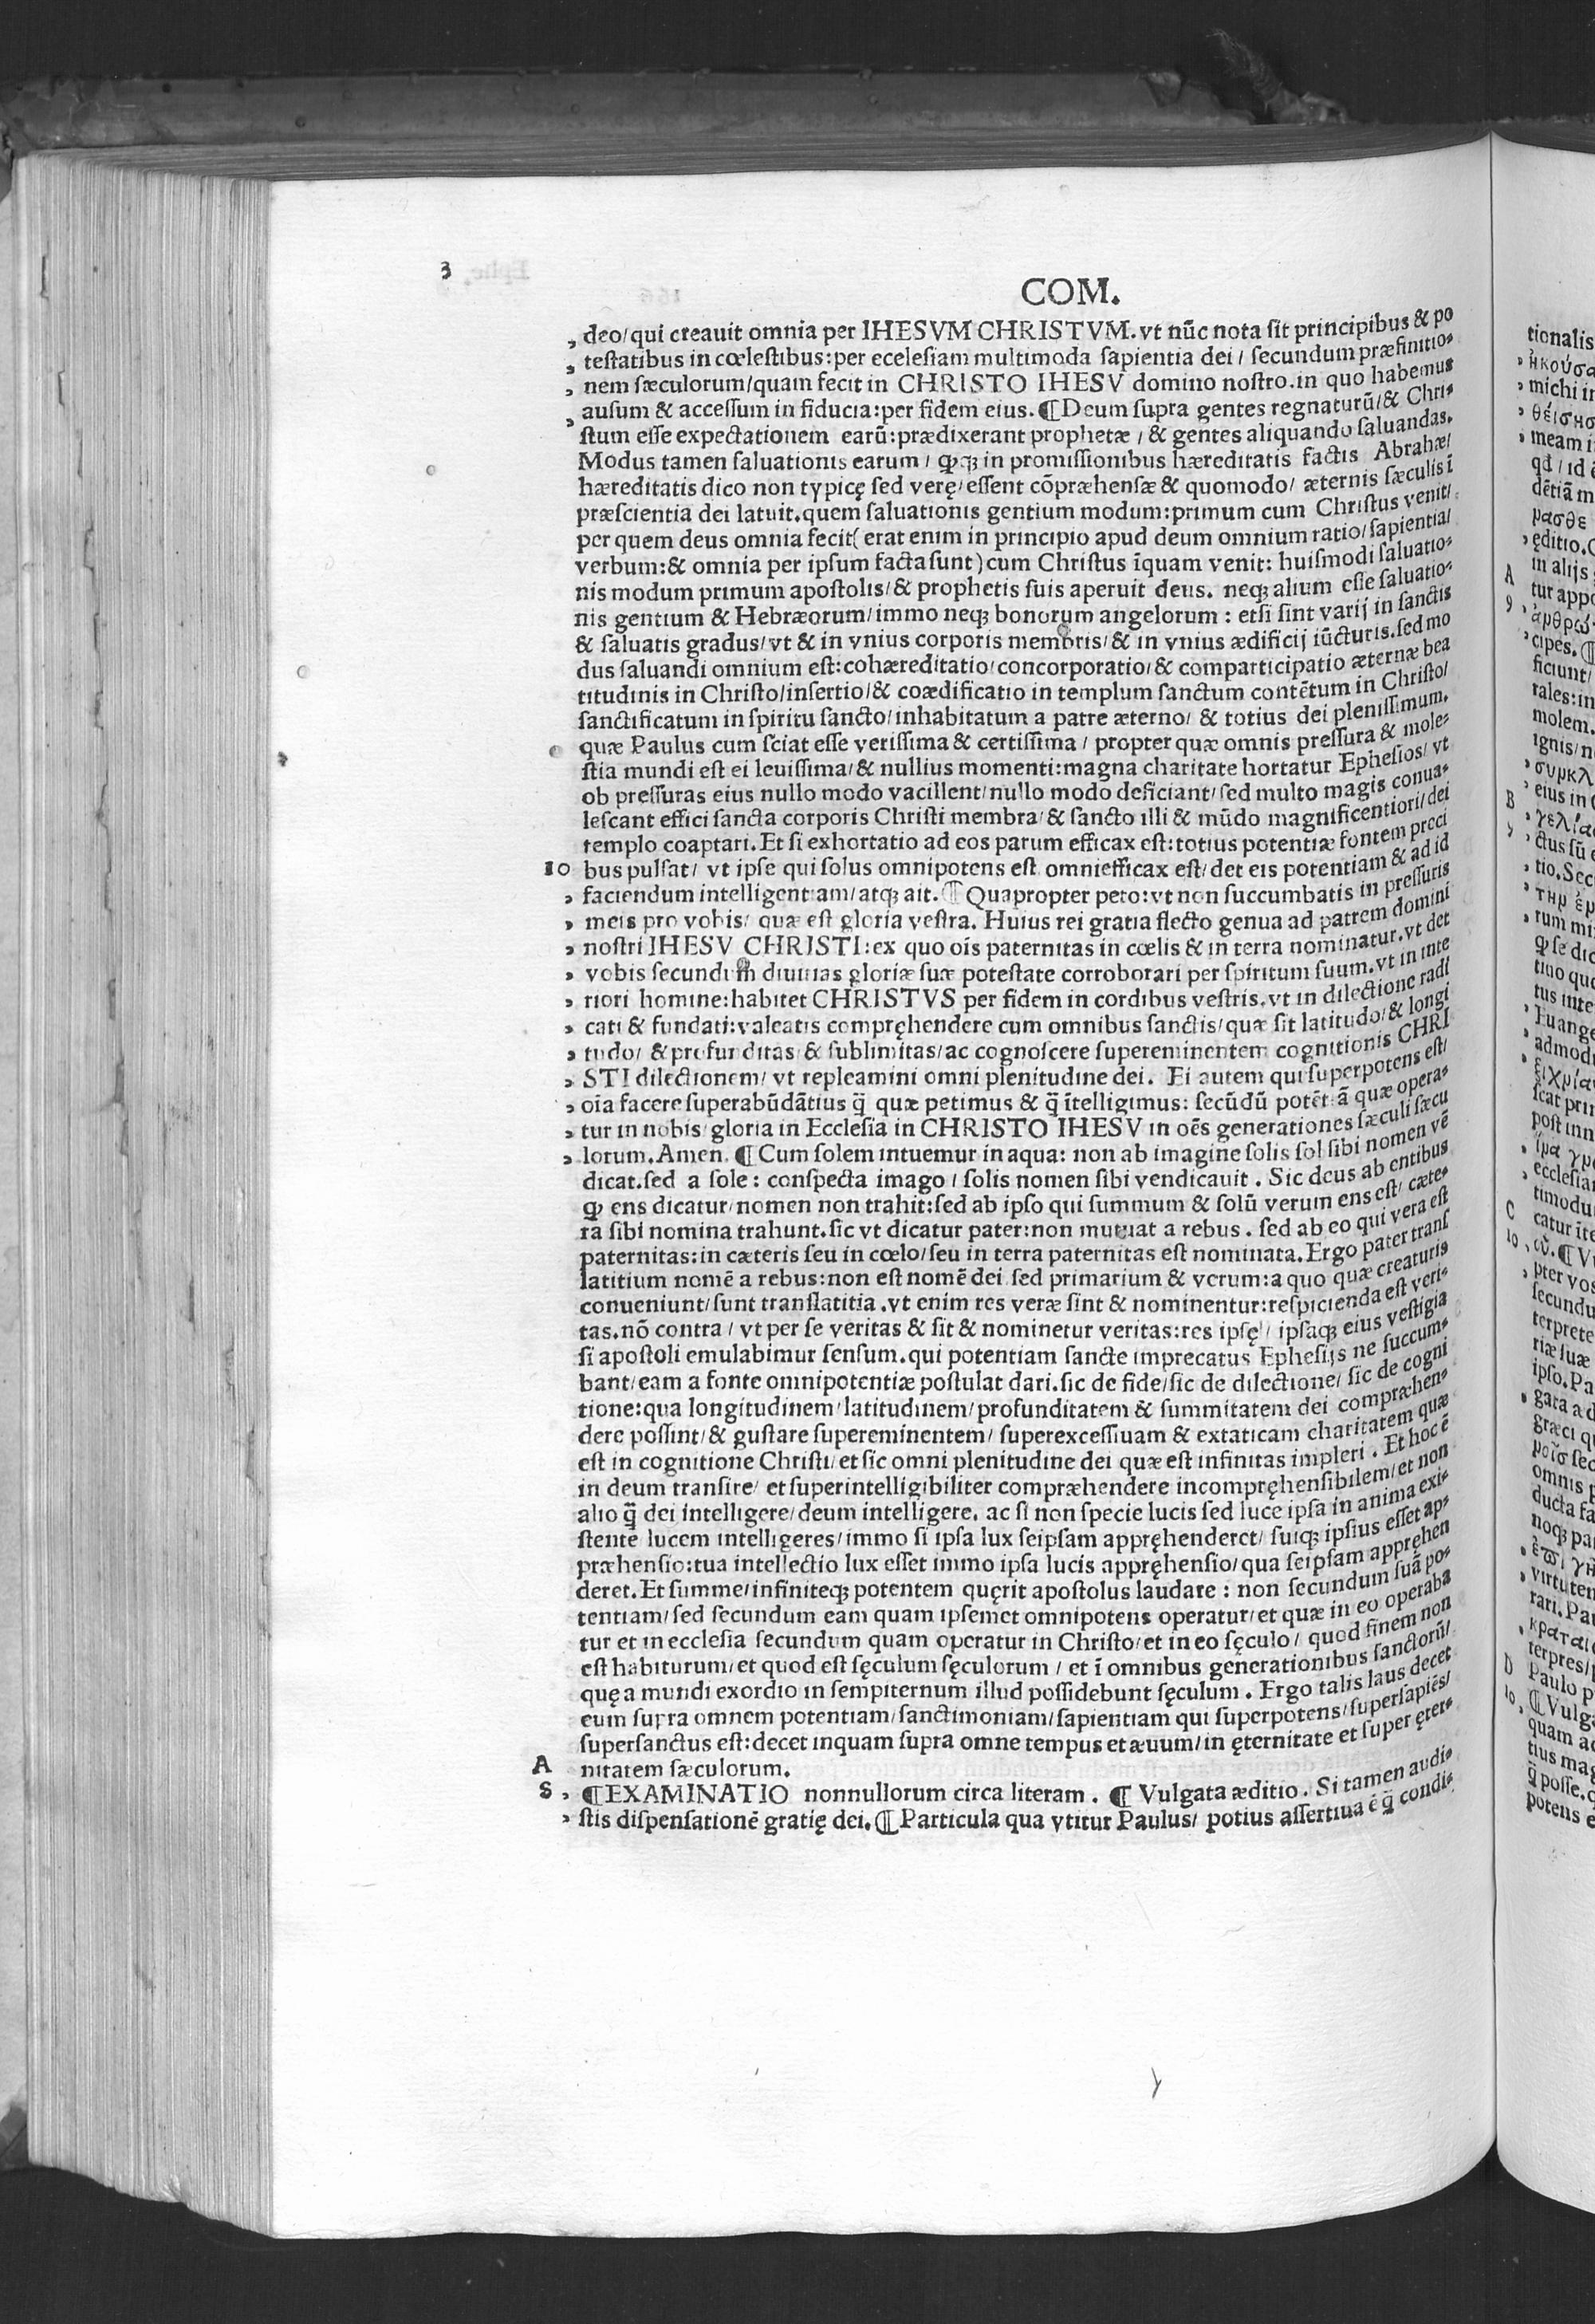 3
COM.
, deo/qui creauit omnia per IHESVM CHRISTVM. vt nūc nota sit principibus & po
, testatibus in cœlestibus: per ecclesiam multimoda sapientia dei/ secundum præfinitio-
, nem sæculorum/quam fecit in CHRISTO IHESV domino nostro. in quo habemus
, ausum & accessum in fiducia: per fidem eius. ¶ Deum supra gentes regnaturū/& Chri-
stum esse expectationem earū: prædixerant prophetæ / & gentes aliquando saluandas.
Modus tamen saluationis earum / ꝙꝗ in promissionibus hæreditatis factis Abrahæ/
hæreditatis dico non typicę sed verę/essent cōpræhensæ & quomodo/ æternis sæculis ī
præscientia dei latuit. quem saluationis gentium modum: primum cum Christus venit/
per quem deus omnia fecit( erat enim in principio apud deum omnium ratio/sapientia/
verbum: & omnia per ipsum facta sunt) cum Christus īquam venit: huismodi saluatio-
nis modum primum apostolis/& prophetis suis aperuit deus. neqꝫ alium esse saluatio-
nis gentium & Hebræorum/immo neqꝫ bonorum angelorum : etsi sint varij in sanctis
& saluatis gradus/vt & in vnius corporis membris/& in vnius ædificij iūcturis. sed mo
dus saluandi omnium est: cohæreditatio/concorporatio/& comparticipatio æternæ bea
titudinis in Christo/insertio/& coædificatio in templum sanctum contētum in Christo/
sanctificatum in spiritu sancto/inhabitatum a patre æterno/ & totius dei plenissimum.
quæ Paulus cum sciat esse verissima & certissima / propter quæ omnis pressura & mole-
stia mundi est ei leuissima/& nullius momenti: magna charitate hortatur Ephesios/ vt
ob pressuras eius nullo modo vacillent/nullo modo deficiant/sed multo magis conua-
lescant effici sancta corporis Christi membra/& sancto illi & mūdo magnificentiori/dei
templo coaptari. Et si exhortatio ad eos parum efficax est: totius potentiæ fontem preci
10 bus pulsat/ vt ipse qui solus omnipotens est omniefficax est/det eis potentiam & ad id
, faciendum intelligentiam/atqꝫ ait. ¶ Quapropter peto: vt non succumbatis in pressuris
, meis pro vobis/ quæ est gloria vestra. Huius rei gratia flecto genua ad patrem domini
, nostri IHESV CHRISTI: ex quo oīs paternitas in cœlis & in terra nominatur. vt det
, vobis secundum diuitias gloriæ suæ potestate corroborari per spiritum suum. vt in inte
, riori homine: habitet CHRISTVS per fidem in cordibus vestris. vt in dilectione radi
, cati & fundati: valeatis compręhendere cum omnibus sanctis/quæ sit latitudo/& longi
, tudo/ & profunditas/& sublimitas/ac cognoscere supereminentem cognitionis CHRI
, STI dilectionem/ vt repleamini omni plenitudine dei. Ei autem qui superpotens est/
, oīa facere superabūdātius q̄ quæ petimus & q̄ ītelligimus: secūdū potētiā quæ opera-
, tur in nobis/gloria in Ecclesia in CHRISTO IHESV in oēs generationes sæculi sæcu
, lorum. Amen. ¶ Cum solem intuemur in aqua: non ab imagine solis sol sibi nomen vē
dicat. sed a sole: conspecta imago / solis nomen sibi vendicauit . Sic deus ab entibus
ꝙ ens dicatur/nomen non trahit: sed ab ipso qui summum & solū verum ens est/ cæte-
ra sibi nomina trahunt. sic vt dicatur pater: non mutuat a rebus . sed ab eo qui vera est
paternitas: in cæteris seu in cœlo/seu in terra paternitas est nominata. Ergo pater trans
latitium nomē a rebus: non est nomē dei sed primarium & verum: a quo quæ creaturis
conueniunt/sunt translatitia. vt enim res veræ sint & nominentur: respicienda est veri-
tas. nō contra / vt per se veritas & sit & nominetur veritas: res ipsę/ ipsaqꝫ eius vestigia
si apostoli emulabimur sensum. qui potentiam sancte imprecatus Ephesijs ne succum-
bant/eam a fonte omnipotentiæ postulat dari. sic de fide/sic de dilectione/ sic de cogni
tione: qua longitudinem/latitudinem/profunditatem & summitatem dei compræhen-
dere possint/& gustare supereminentem/ superexcessiuam & extaticam charitatem quæ
est in cognitione Christi/et sic omni plenitudine dei quæ est infinitas impleri . Et hoc ē
in deum transire/ et superintelligibiliter compræhendere incompręhensibilem/et non
alio q̄ dei intelligere/deum intelligere. ac si non specie lucis sed luce ipsa in anima exi-
stente lucem intelligeres/immo si ipsa lux seipsam appręhenderet/ suiqꝫ ipsius esset ap-
præhensio: tua intellectio lux esset immo ipsa lucis appręhensio/qua seipsam appręhen
deret. Et summe/infiniteqꝫ potentem quęrit apostolus laudare : non secundum suā po-
tentiam/sed secundum eam quam ipsemet omnipotens operatur/et quæ in eo operaba
tur et in ecclesia secundum quam operatur in Christo/et in eo sęculo/ quod finem non
est habiturum/et quod est sęculum sęculorum / et ī omnibus generationibus sanctorū/
quę a mundi exordio in sempiternum illud possidebunt sęculum . Ergo talis laus decet
eum supra omnem potentiam/sanctimoniam/sapientiam qui superpotens/supersapiēs/
supersanctus est: decet inquam supra omne tempus et æuum/in ęternitate et super ęter-
A nitatem sæculorum.
8 , ¶ EXAMINATIO nonnullorum circa literam . ¶ Vulgata æditio . Si tamen audi-
, stis dispensationē gratię dei. ¶ Particula qua vtitur Paulus/ potius assertiua ē q̄ condi-